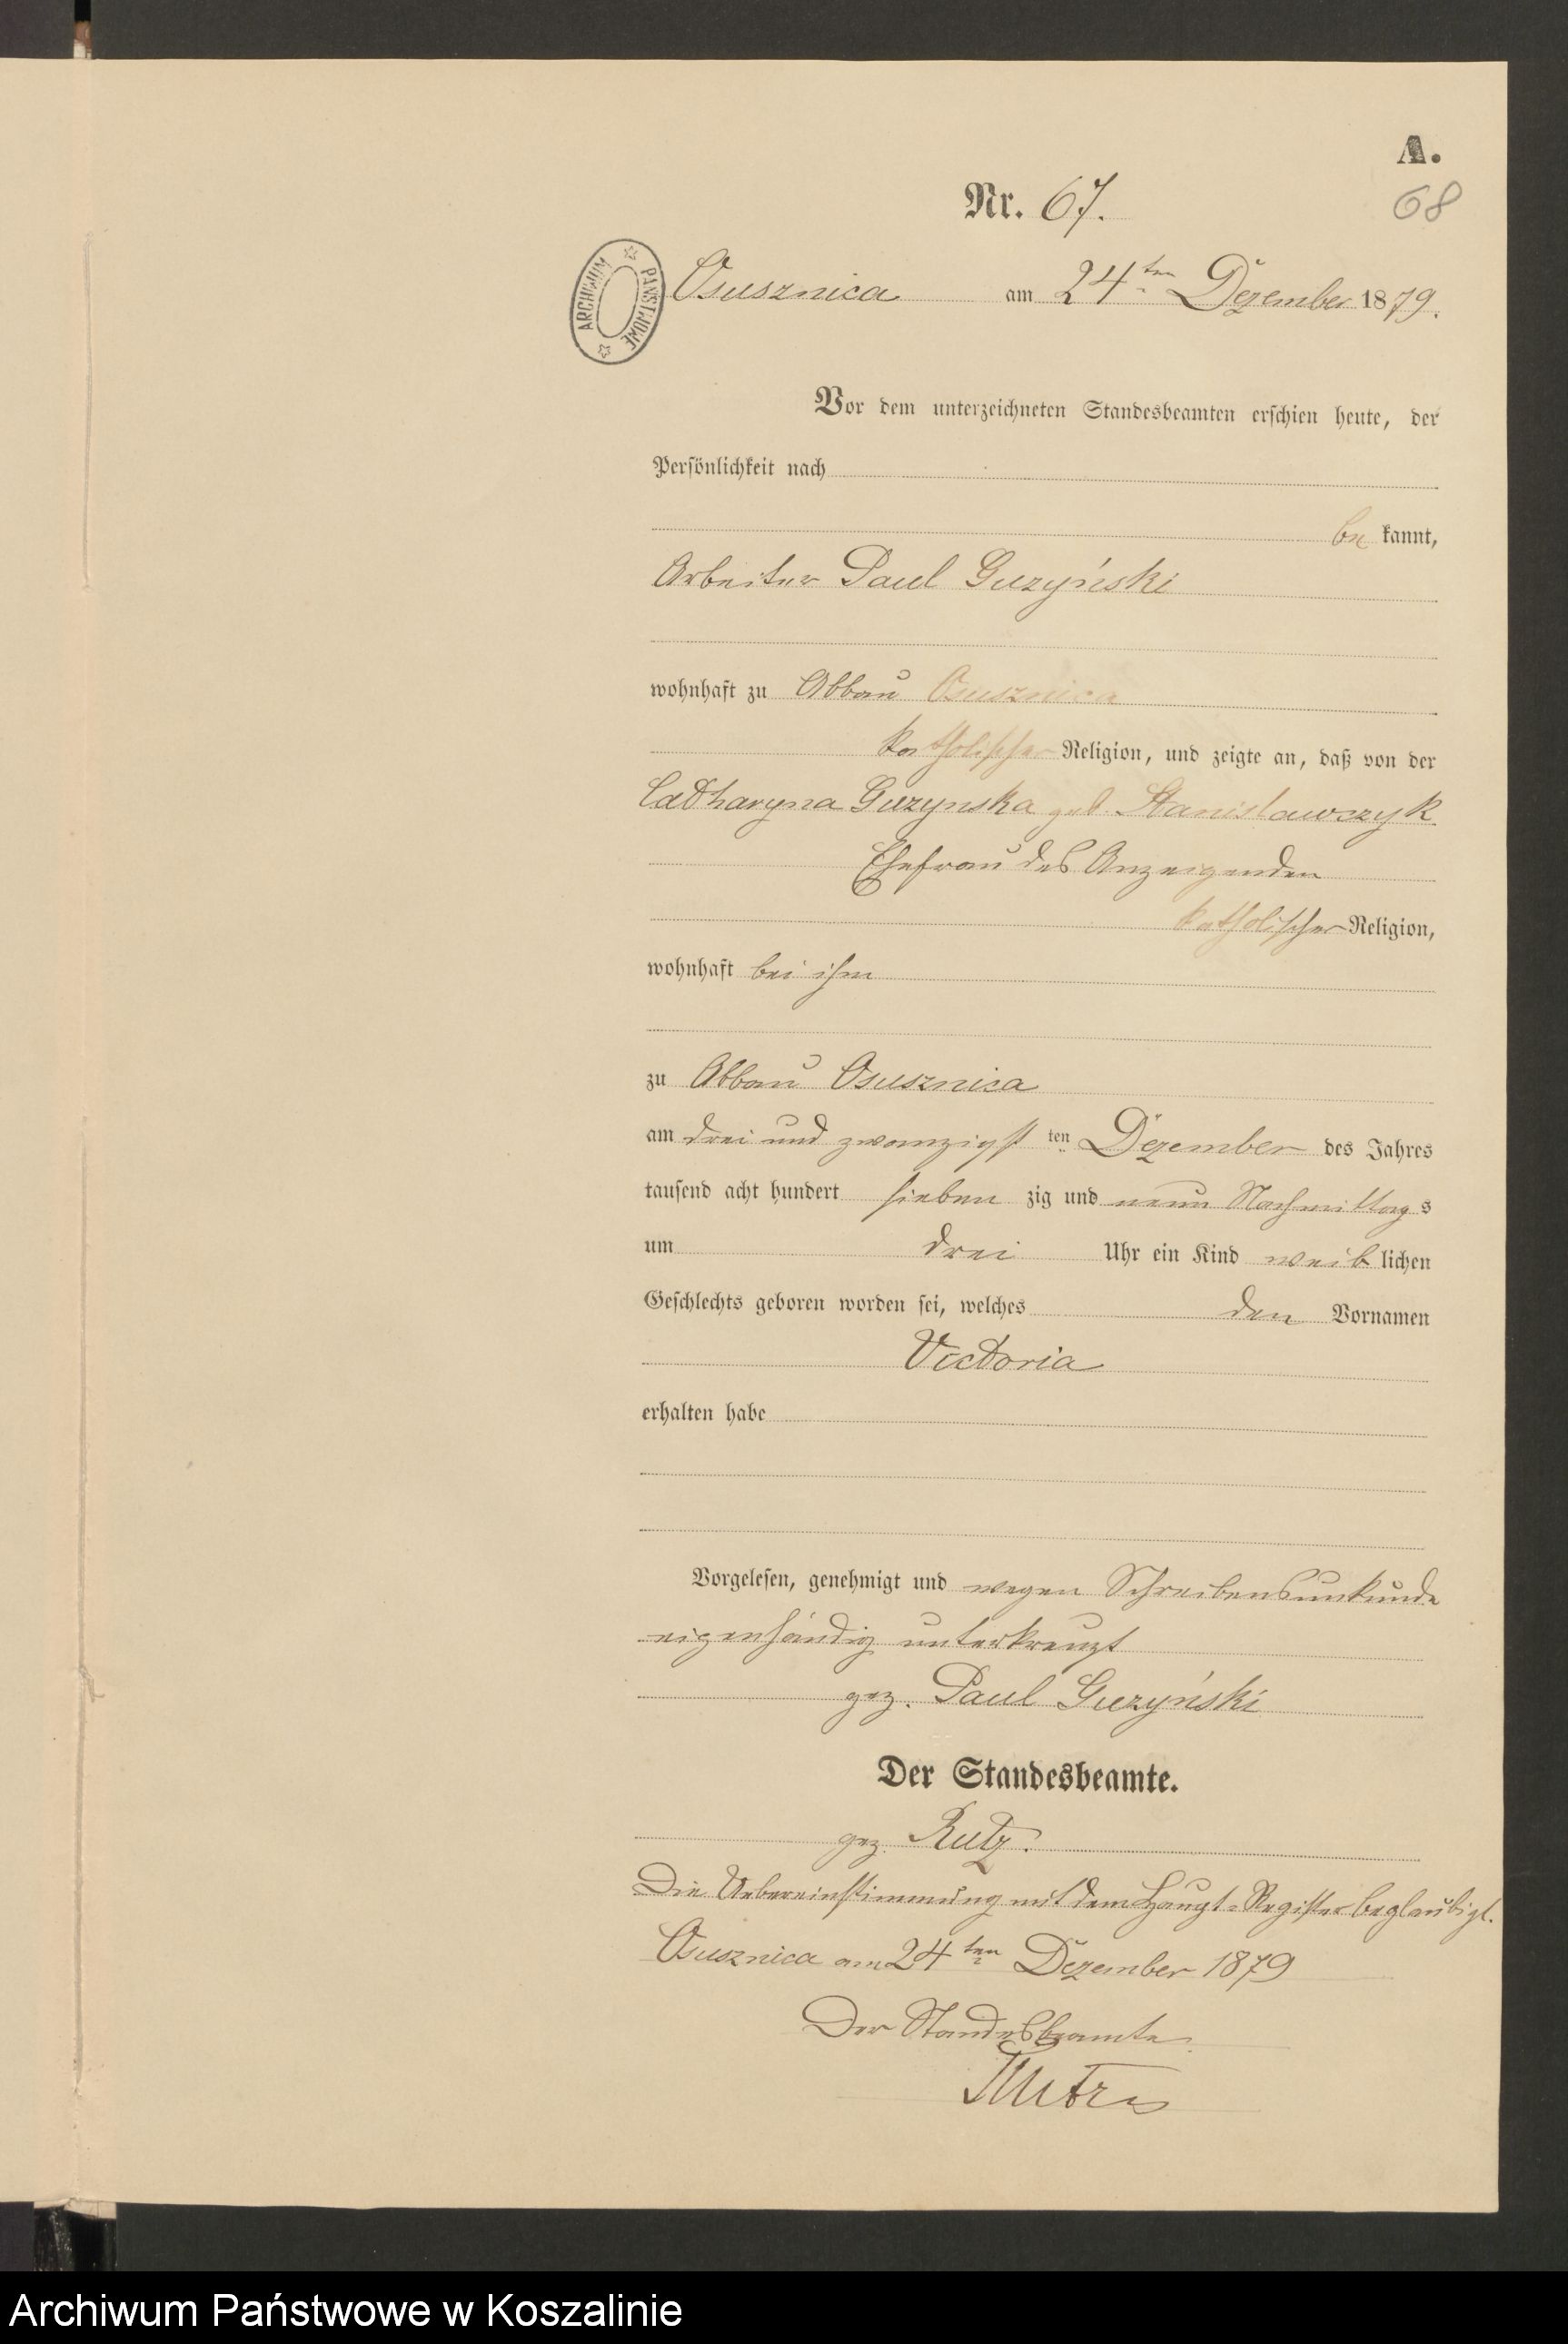 A.
Nr. 67.
68
ARCHIWUM PAŃSTWOWE
Osusznica am 24ten Dezember 1879.
Vor dem unterzeichneten Standesbeamten erschien heute, der
Persönlichkeit nach
be kannt,
Arbeiter Paul Guzyński
wohnhaft zu Abbau Osusznica
katholischer Religion, und zeigte an, daß von der
Catharyna Guzynska geb. Stanislawczyk
Ehefrau des Anzeigenden
katholischer Religion,
wohnhaft bei ihm
zu Abbau Osusznica
am drei und zwanzigst ten Dezember des Jahres
tausend acht hundert sieben zig und neun Nachmittag s
um drei Uhr ein Kind weib lichen
Geschlechts geboren worden sei, welches den Vornamen
Victoria
erhalten habe
Vorgelesen, genehmigt und wegen Schreibensunkunde
eigenhändig unterkreuzt
gez. Paul Guzyński
Der Standesbeamte.
gez. Rutz.
Die Uebereinstimmung mit dem Haupt-Register beglaubigt.
Osusznica am 24ten Dezember 1879
Der Standesbeamte.
Archiwum Państwowe w Koszalinie